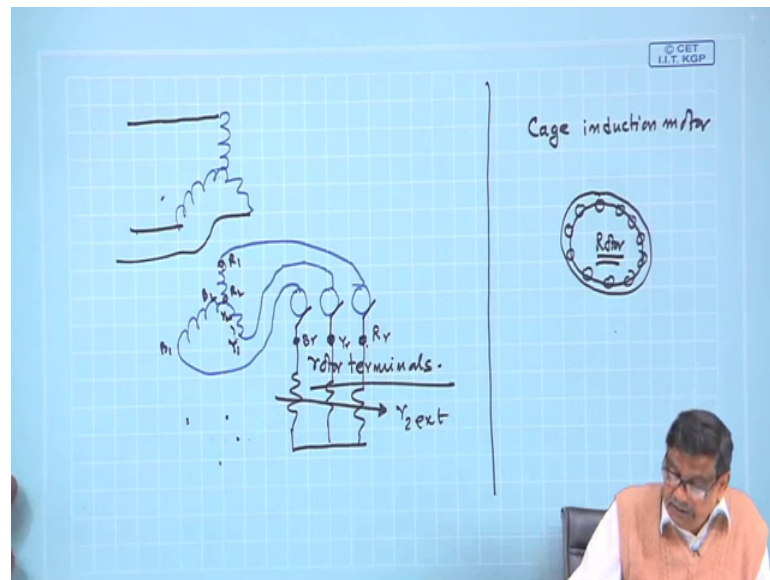 © CET
I.I.T. KGP
Cage induction motor
Rotor
R1
B2 R2
Y2
B1
Y1
Br Yr Rr
rotor terminals.
r2 ext